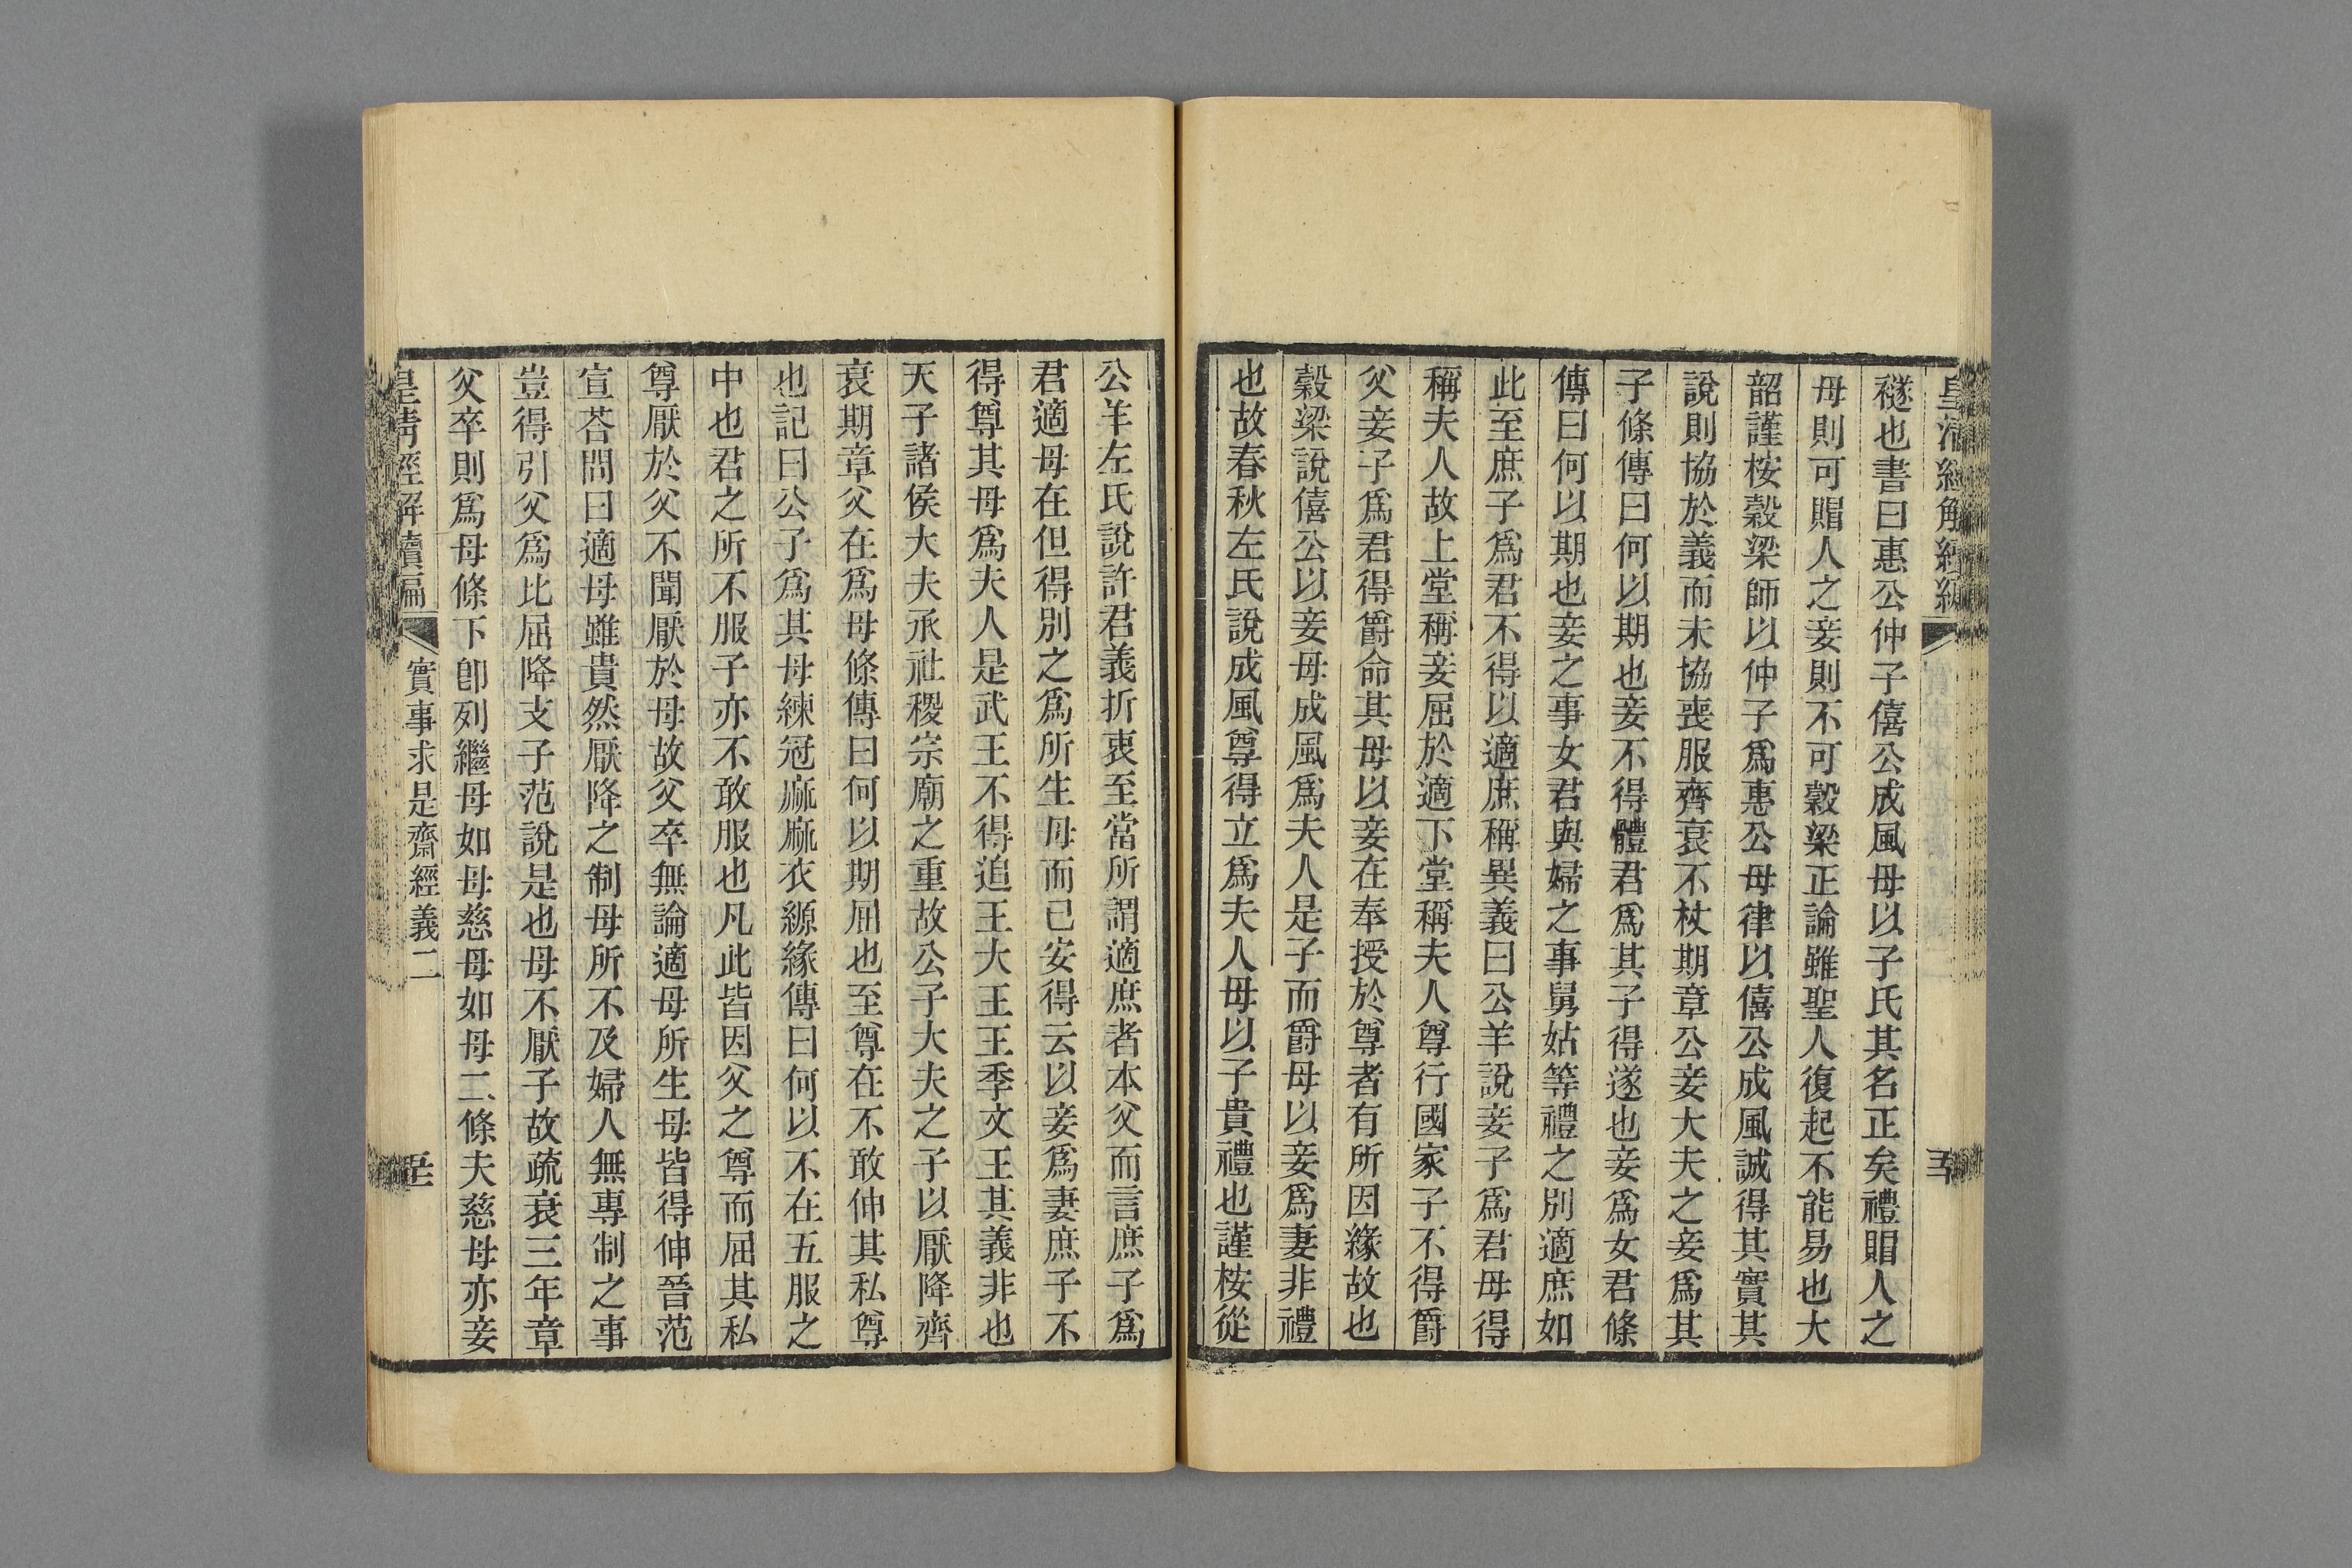 襚也書曰惠公仲子僖公成風母以子氏其名正矣禮賵人之
母則可賵人之妾則不可穀梁正論雖聖人復起不能易也大
韶謹桉穀梁師以仲子爲惠公母律以僖公成風誠得其實其
說則協於義而未協喪服齊衰不杖期章公妾大夫之妾爲其
子條傳曰何以期也妾不得體君爲其子得遂也妾爲女君條
傳曰何以期也妾之事女君與婦之事舅姑等禮之別適庶如
此至庶子爲君不得以適庶稱異義曰公羊說妾子爲君母得
稱夫人故上堂稱妾屈於適下堂稱夫人尊行國家子不得爵
父妾子爲君得爵命其母以妾在奉授於尊者有所因緣故也
穀梁說僖公以妾母成風爲夫人是子而爵母以妾爲妻非禮
也故春秋左氏說成風尊得立爲夫人母以子貴禮也謹桉從
公羊左氏說許君義折衷至當所謂適庶者本父而言庶子爲
君適母在但得別之爲所生母而已安得云以妾爲妻庶子不
得尊其母爲夫人是武王不得追王大王王季文王其義非也
天子諸侯大夫承社稷宗廟之重故公子大夫之子以厭降齊
衰期章父在爲母條傳曰何以期屈也至尊在不敢伸其私尊
也記曰公子爲其母練冠麻麻衣縓緣傳曰何以不在五服之
中也君之所不服子亦不敢服也凡此皆因父之尊而屈其私
尊厭於父不聞厭於母故父卒無論適母所生母皆得伸晉范
宣荅問曰適母雖貴然厭降之制母所不及婦人無專制之事
豈得引父爲比屈降支子范說是也母不厭子故疏衰三年章
父卒則爲母條下卽列繼母如母慈母如母二條夫慈母亦妾
皇淸經解續編
實事求是齋經義二